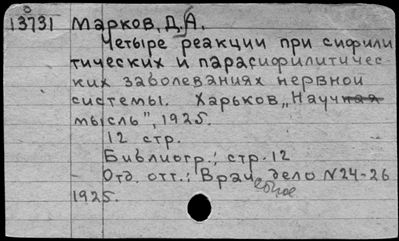 13731 Марков, Д. А.
Четыре реакции при сифили
тических и парасифилитичес
ких заболеваниях нервной
системы. Харьков, „Научная
мысль", 1925.
12 стр.
Библиогр.; стр. 12
Отд. отт.: Врачебное дело N24-26
1925.